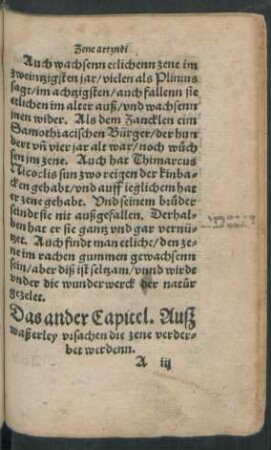 Zene artzndi
Auch wachsenn etlichenn zene im
zweintzigsten jar/ vielen als Plinius
sagt/ im achzigsten/ auch fallenn sie
etlichen im alter auß/ vnd wachsenn
jnen wider. Als dem Zancklen eim
Samothracischen Bürger/ der hun
dert vñ vier jar alt war/ noch wůch
sen jm zene. Auch hat Thimarcus
Nicoclis sun zwo reigen der kinba-
cken gehabt/ vnd auff ieglichem hat
er zene gehabt. Vnd seinem brůder
seindt sie nit außgefallen. Derhal-
ben hat er sie gantz vnd gar vernü-
tzet. Auch findt man etliche/ den ze-
ne im rachen gummen gewachsenn
sein/ aber diß ist seltzam/ vnnd wirde
vnder die wunderwerck der natur
gezelet.
Das ander Capitel. Auß
waßerley vrsachen die zene verder-
bet werdenn.
A iij